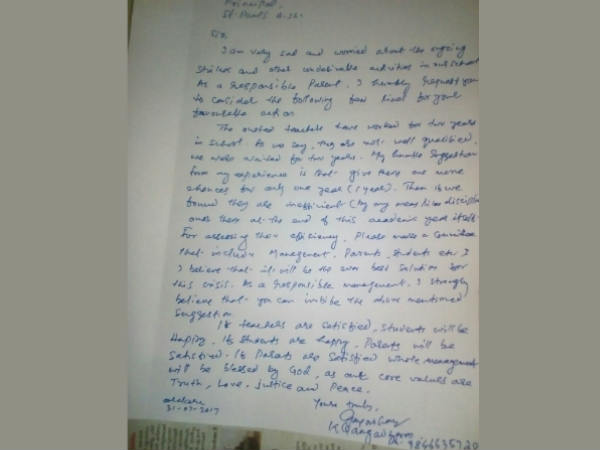 Principal,
St. Paul's
Sir,
I am very sad and worried about the ongoing
Strikes and other undesirable activities in our school
As a Responsible Parent, I humbly request you
to consider the following few lines for your
favourable action
The ousted teachers have worked for two years
in school. As we say, they are not well qualified,
we were waited for two years. My humble Suggestion
from my experience is that give them one more
chances for only one year (1 year). Then if we
found they are inefficient (by any means like discipline
ones there at the end of this academic year itself.
For assessing their efficiency, Please make a Committee
that include Management, Parents, Students etc.
I believe that it will be the ever best Solution for
this crisis. As a responsible management, I strongly
believe that you can imbibe the above mentioned
Suggestion.
If teachers are satisfied, Students will be
Happy, If Students are happy, Parents will be
Satisfied. If Parents are Satisfied whole management
will be blessed by God, as our core values are
Truth, Love, Justice and Peace.
31-07-2017
Yours truly,